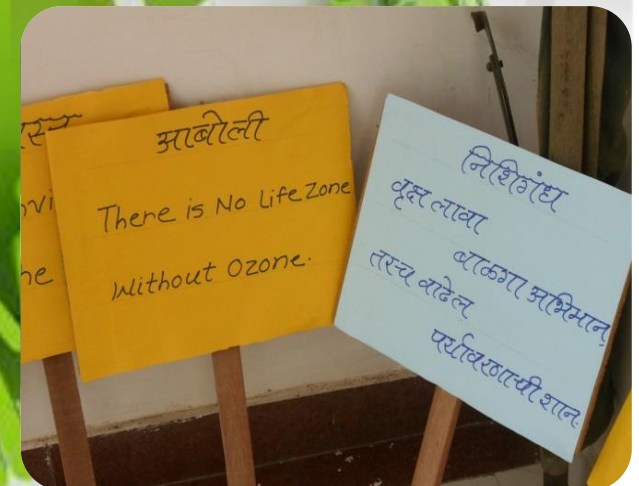 आबोली
There is No Life Zone
Without Ozone.
निशिगंध
वृक्ष लावा
बाळगा अभिमान,
तरच वाढेल
पर्यावरणाची शान.